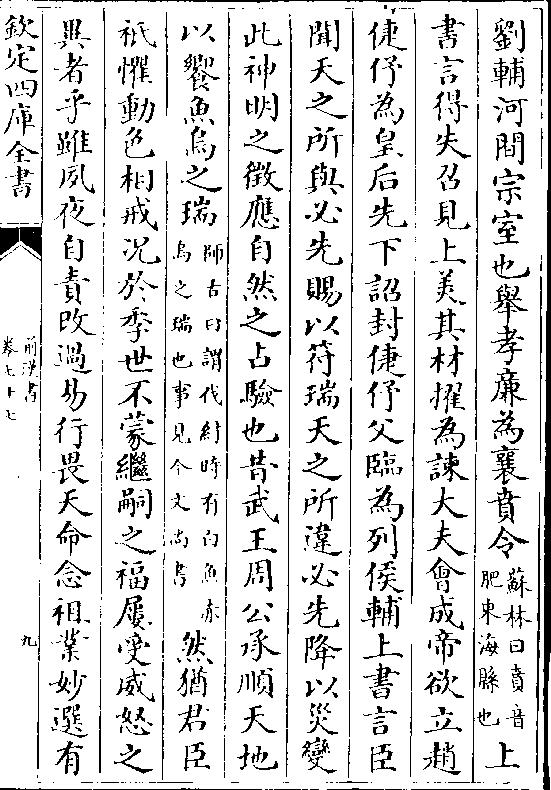 劉輔河間宗室也舉孝廉為襄賁令蘇林曰賁音肥東海縣也上
書言得失召見上美其材擢為諫大夫會成帝欲立趙
倢伃為皇后先下詔封倢伃父臨為列侯輔上書言臣
聞天之所與必先賜以符瑞天之所違必先降以災變
此神明之徵應自然之占驗也昔武王周公承順天地
以饗魚烏之瑞師古曰謂伐紂時有白魚赤烏之瑞也事見今文尚書然猶君臣
祇懼動色相戒况於季世不蒙繼嗣之福屢受威怒之
異者乎雖夙夜自責改過易行畏天命念祖業妙選有
欽定四庫全書
前漢書
卷七十七
九